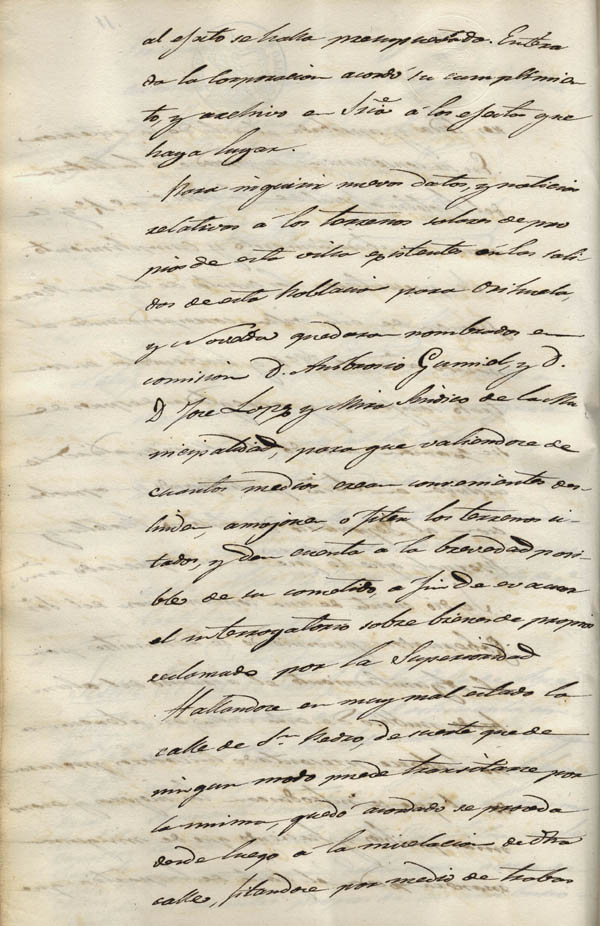 al efecto se halla presupuestado. Entera
da la Corporacion acordó su cumplimien
to, y archivo en Sria á los efectos que
haya lugar.
Para inquirir nuevos datos, y noticias
relativos á los terrenos solares de pro
pios de esta villa existentes en las sali
das de esta Poblacion para Orihuela,
y Novelda quedaron nombrados en
comision D. Ambrosio Gumiel, y D.
D Jose Lopez y Mira Sindico de la Mu
nicipalidad, para que valiendose de
cuantos medios crean convenientes des
linden, amojonen, ó fiten los terrenos ci-
tados, y den cuenta á la brevedad posi-
ble de su cometido, a fin de evacuar
el interrogatorio sobre bienes de propios
reclamado por la Superioridad
Hallandose en muy mal estado la
calle de Sn Pedro, de suerte que de
ningun modo puede transitarse por
la misma, quedó acordado se proceda
desde luego á la nivelacion de dha
calle, fitandose por medio de trabas